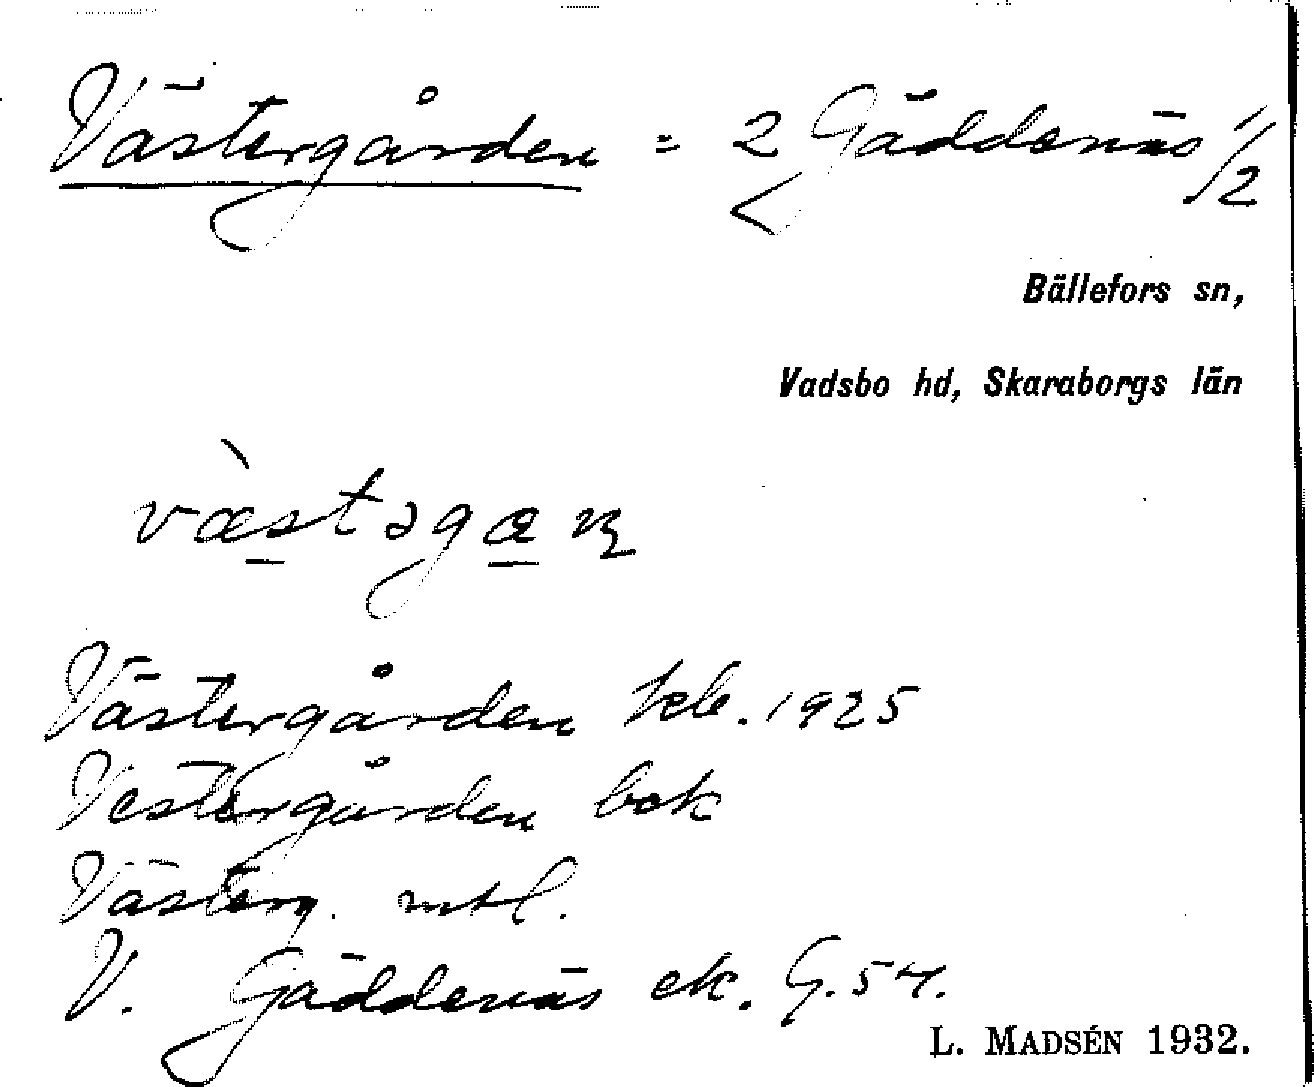 Västergården = 2 Gäddenäs 1/2
Bällefors sn,
Vadsbo hd, Skaraborgs län
væ̀stəgaɳ
Västergården kb. 1925
Vestergården bok
Västerg. mtl.
V. Gäddenäs ek. G. 54.
L. MADSÉN 1932.